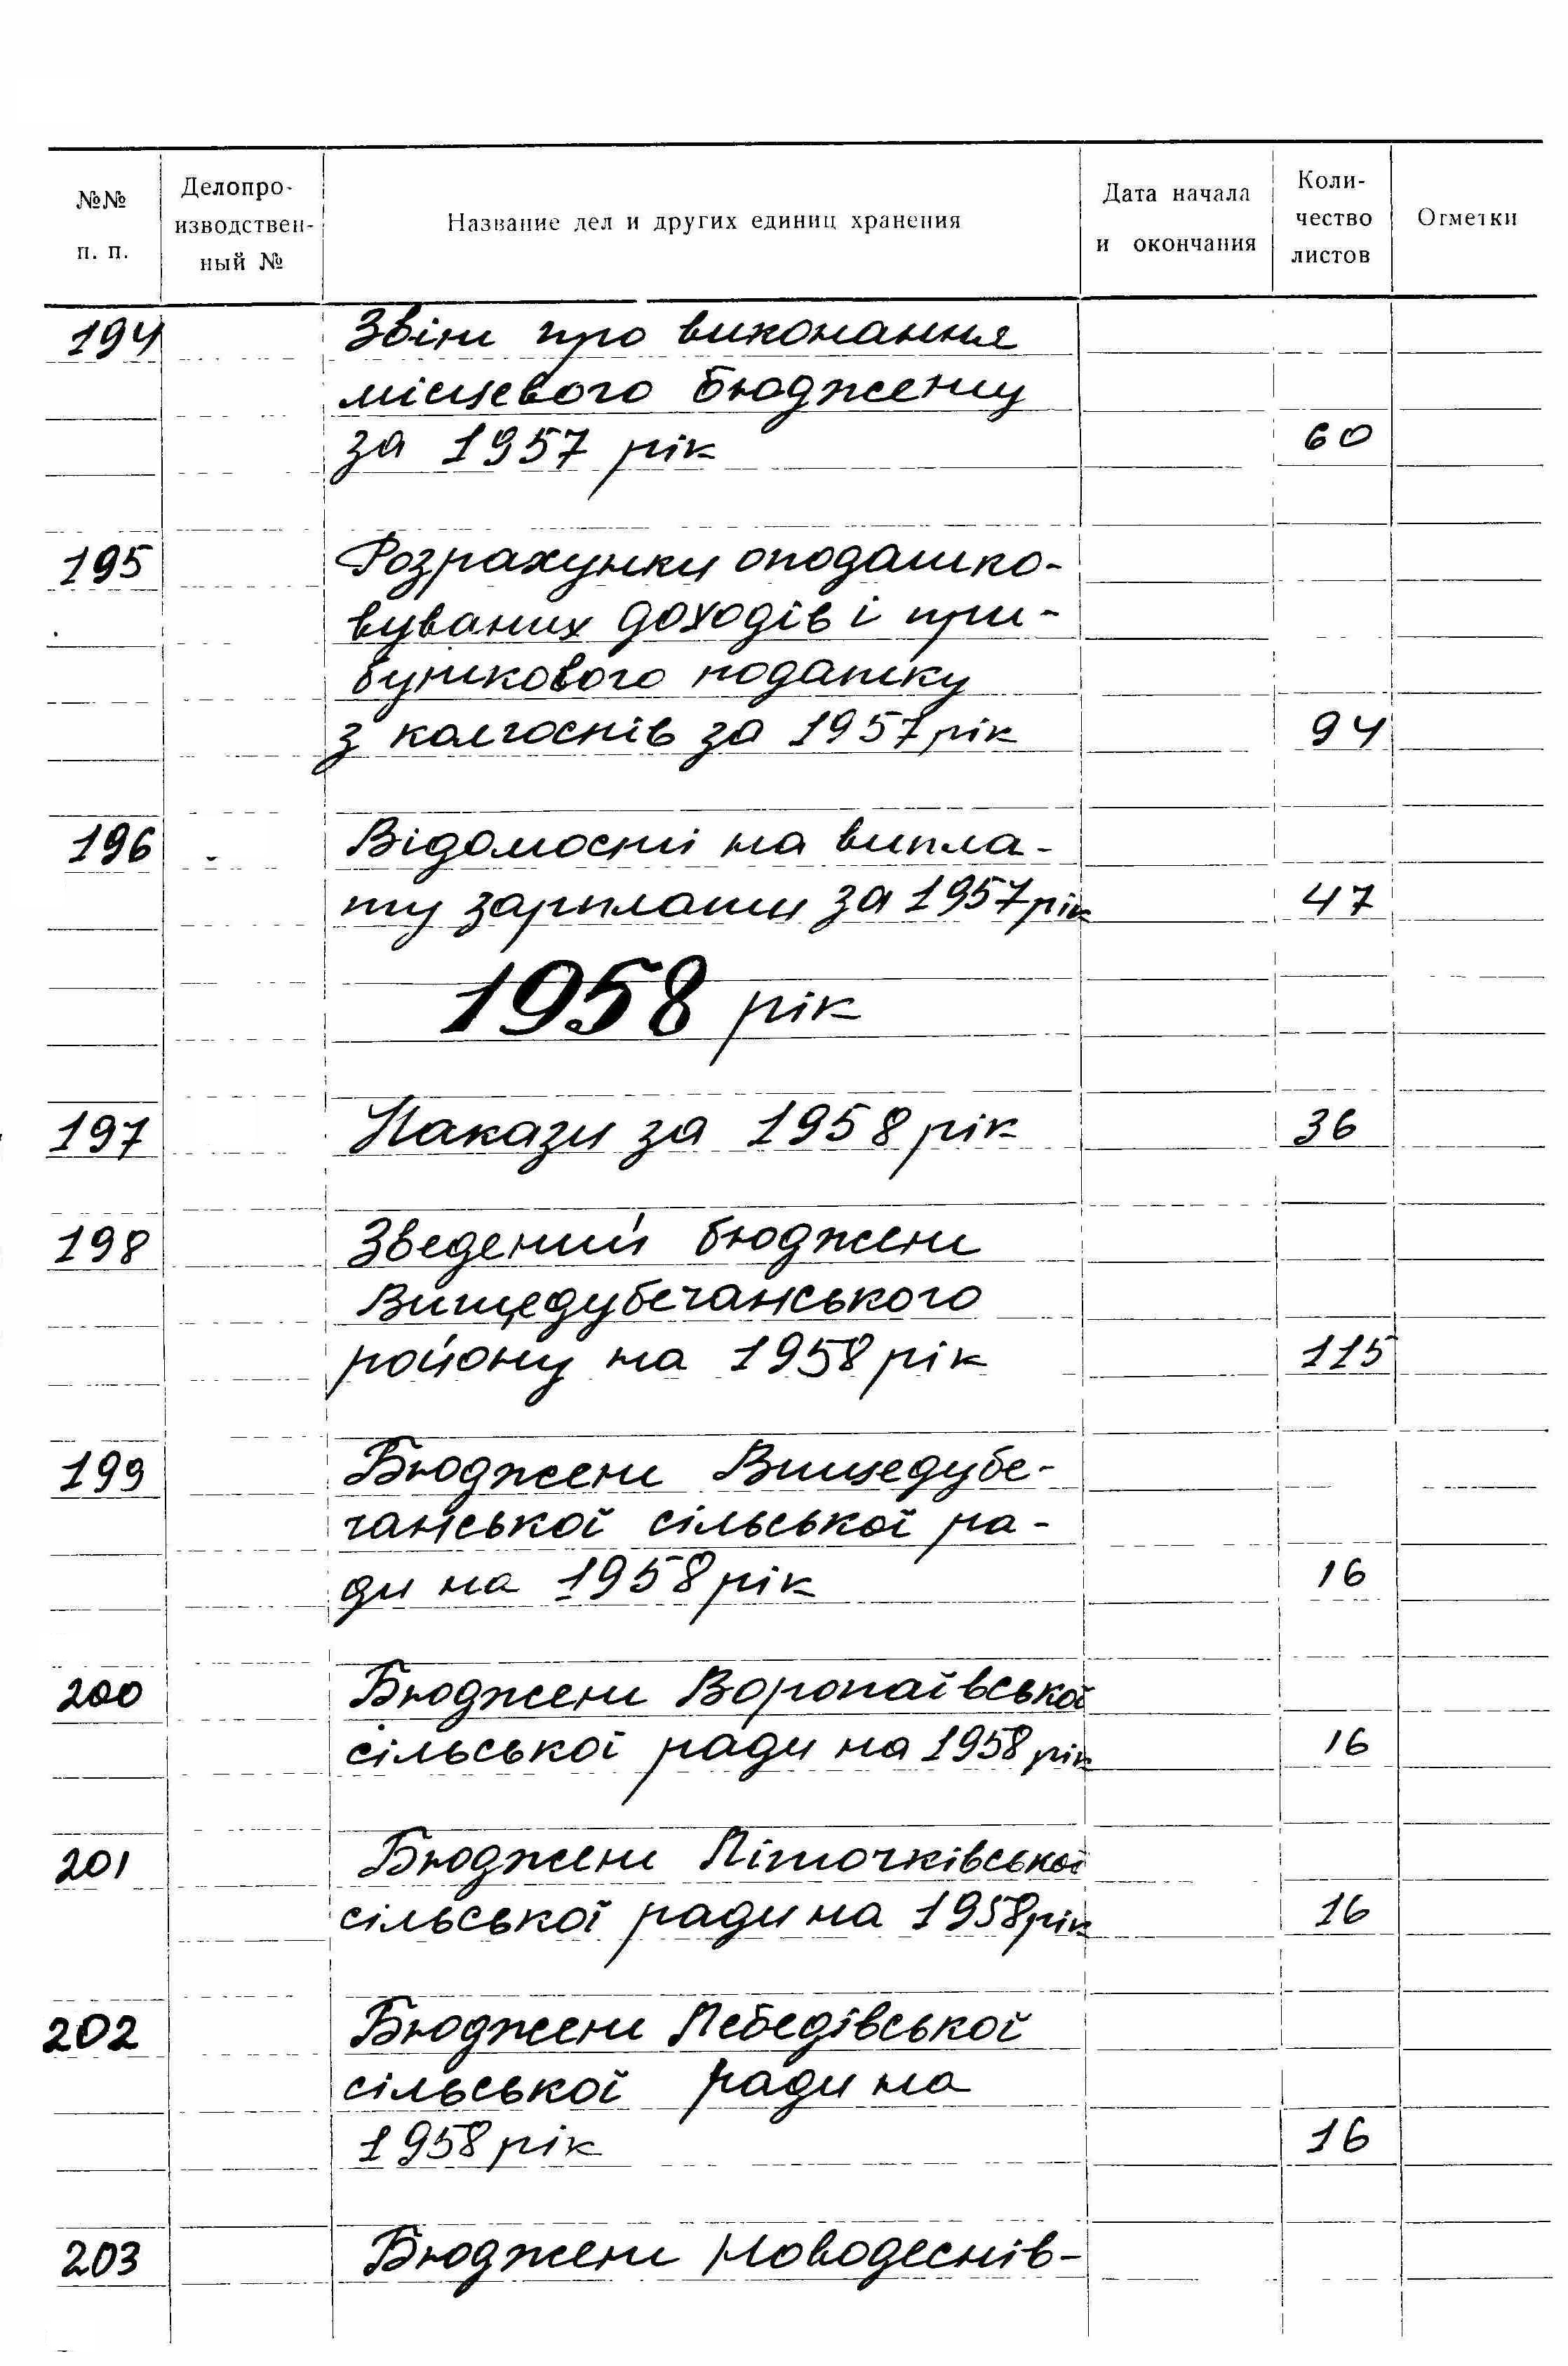 №№ п. п.
Делопроизводственный №
Название дел и других единиц хранения
Дата начала и окончания
Количество листов
Отметки
194 Звіт про виконання
місцевого бюджету
за 1957 рік 60
195 Розрахунки оподатко-
вуваних доходів і при-
буткового податку
з колгоспів за 1957 рік 94
196 Відомості на випла-
ту зарплати за 1957 рік 47
1958 рік
197 Накази за 1958 рік 36
198 Зведений бюджет
Вищедубечанського
району на 1958 рік 115
199 Бюджет Вищедубе-
чанської сільської ра-
ди на 1958 рік 16
200 Бюджет Воропаївської
сільської ради на 1958 рік 16
201 Бюджет Літочківської
сільської ради на 1958 рік 16
202 Бюджет Лебедівської
сільської ради на
1958 рік 16
203 Бюджет Новодеснів-